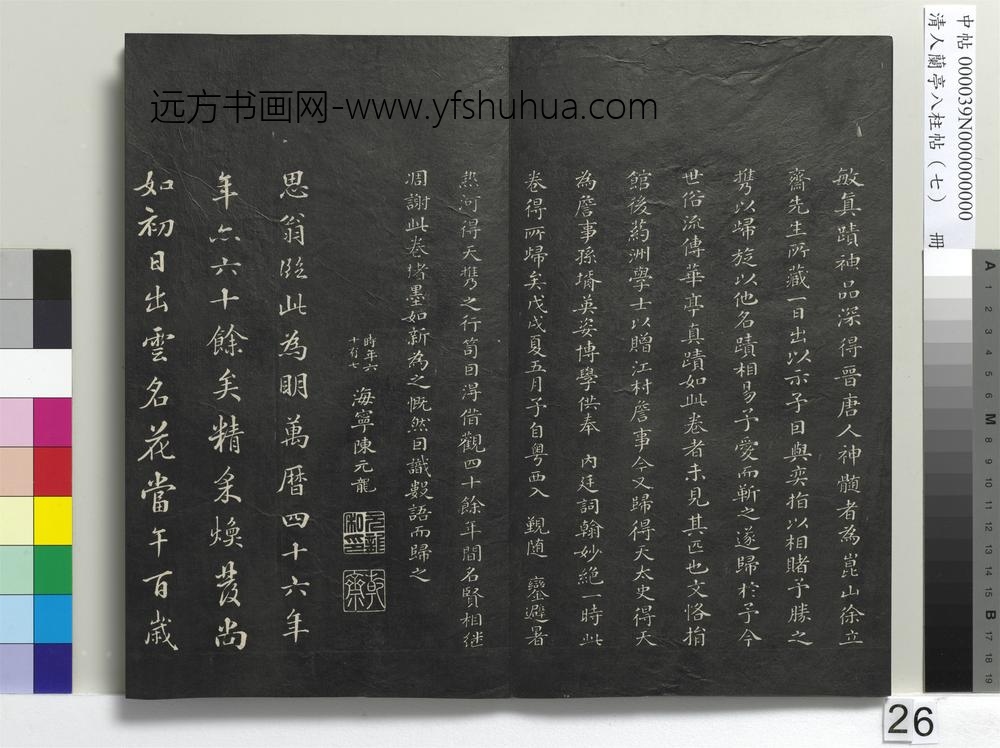 敏真蹟神品深得晉唐人神髓者為崑山徐立
齋先生所藏一日出以示予因與奕指以相賭予勝之
攜以歸旋以他名蹟相易予愛而靳之遂歸於予今
世俗流傳華亭真蹟如此卷者未見其匹也文恪捐
館後葯洲學士以贈江村詹事今又歸得天太史得天
為詹事孫壻英安博學供奉 內廷詞翰妙絕一時此
卷得所歸矣戊戌夏五月予自粵西入 覲随 鑾避暑
熱河得天攜之行笥因得借觀四十餘年間名賢相继
凋謝此卷堵墨如新為之慨然因識數語而歸之
時年六
十有七
海寧陳元龍
元龍
思翁臨此為明萬曆四十六年
年六十餘矣精采煥發尚
如初日出雲名花當午百歲
远方书画网-www.yfshuhua.com
中帖 000039N000000000
清人蘭亭八柱帖（七） 冊
A 1 2 3 4 5 6 M 8 9 10 11 12 13 14 15 B 17 18 19
26